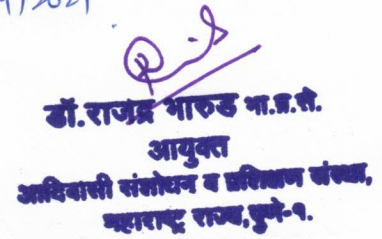 /2021
डॉ.राजेंद्र भारुड भा.प्र.से.
आयुक्त
आदिवासी संशोधन व प्रशिक्षण संस्था,
महाराष्ट्र राज्य,पुणे-१.